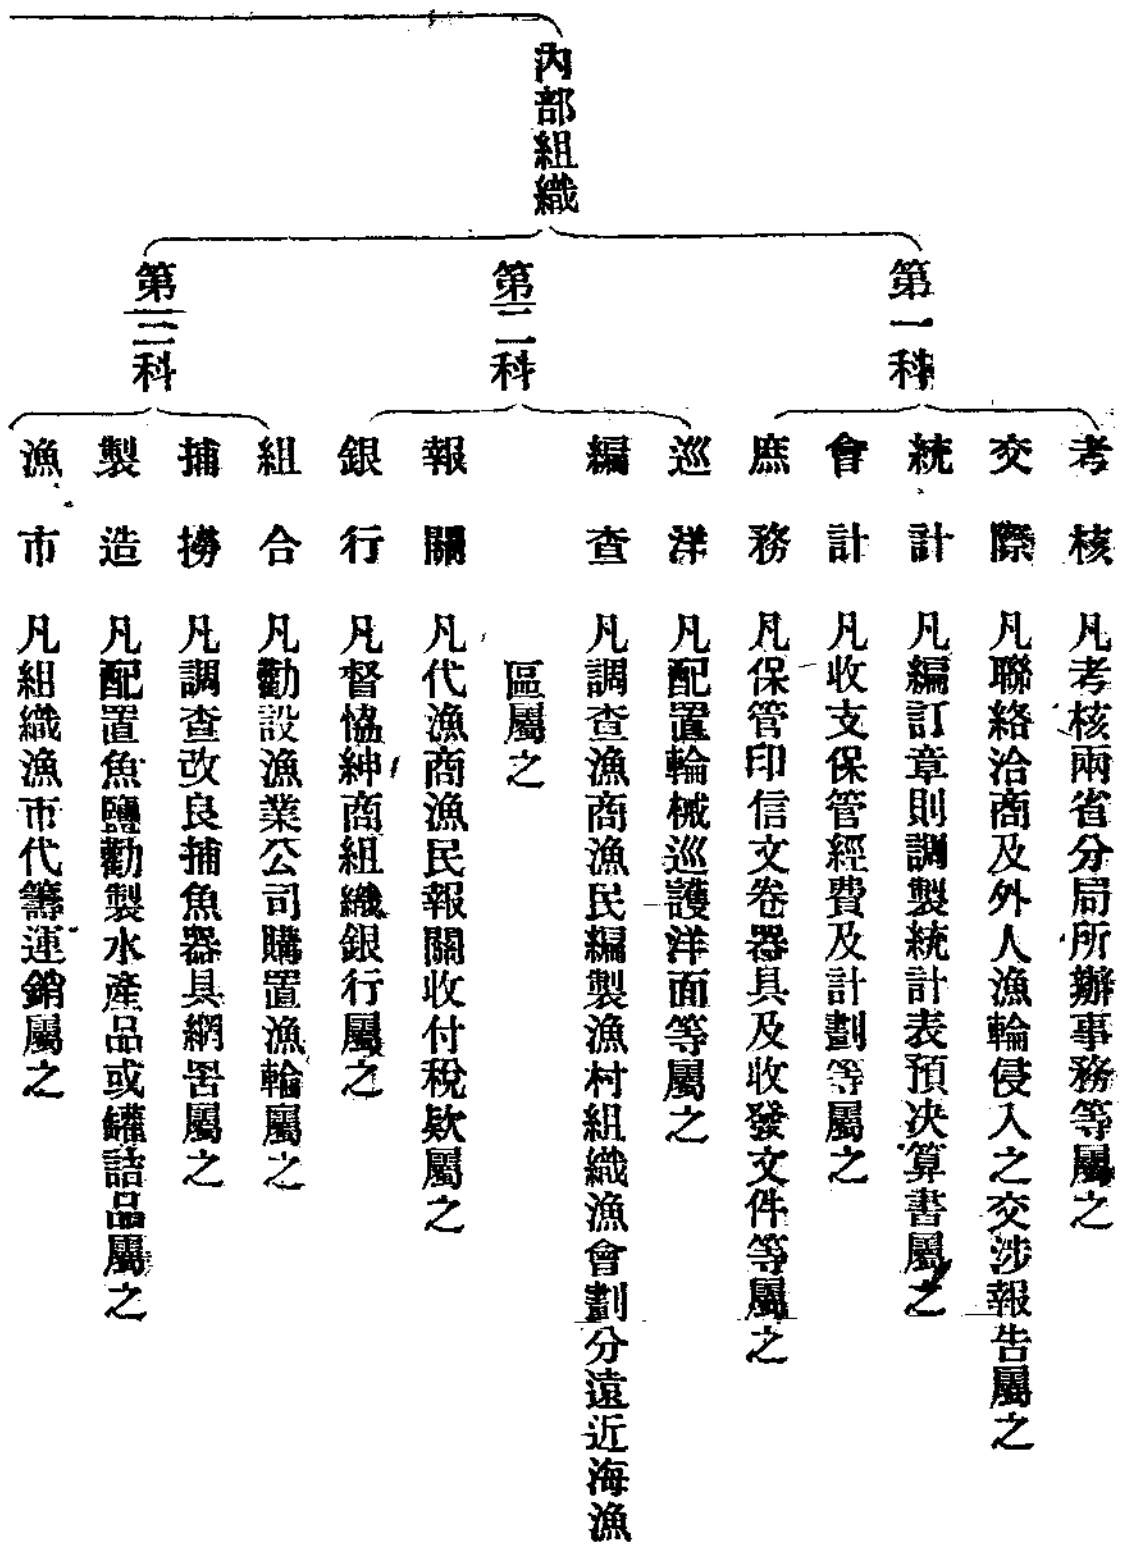 內部組織
第一科
考核 凡考核兩省分局所辦事務等屬之
交際 凡聯絡洽商及外人漁輪侵入之交涉報告屬之
統計 凡編訂章則調製統計表預決算書屬之
會計 凡收支保管經費及計劃等屬之
庶務 凡保管印信文卷器具及收發文件等屬之
第二科
巡洋 凡配置輪械巡護洋面等屬之
編查 凡調查漁商漁民編製漁村組織漁會劃分遠近海漁
區屬之
報關 凡代漁商漁民報關收付稅欵屬之
銀行 凡督恊紳商組織銀行屬之
第三科
組合 凡勸設漁業公司購置漁輪屬之
捕撈 凡調查改良捕魚器具網罟屬之
製造 凡配置魚鹽勸製水產品或罐詰品屬之
漁市 凡組織漁市代籌運銷屬之